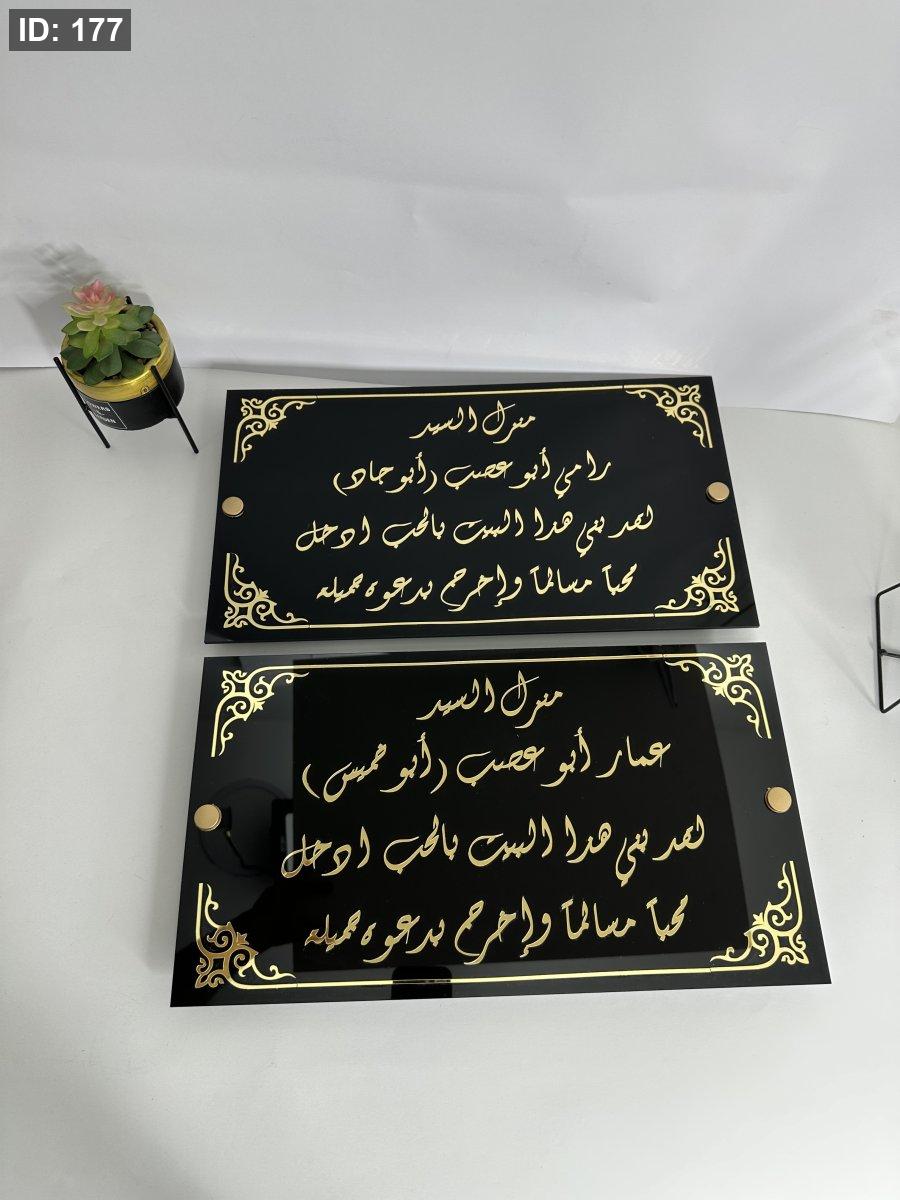 ID: 177
منزل السيد
رامي أبو عصب (أبو جاد)
لقد بني هذا البيت بالحب ادخل
محباً مسالماً وإخرج بدعوه جميله
منزل السيد
عمار أبو عصب (أبو خميس)
لقد بني هذا البيت بالحب ادخل
محباً مسالماً وإخرج بدعوه جميله